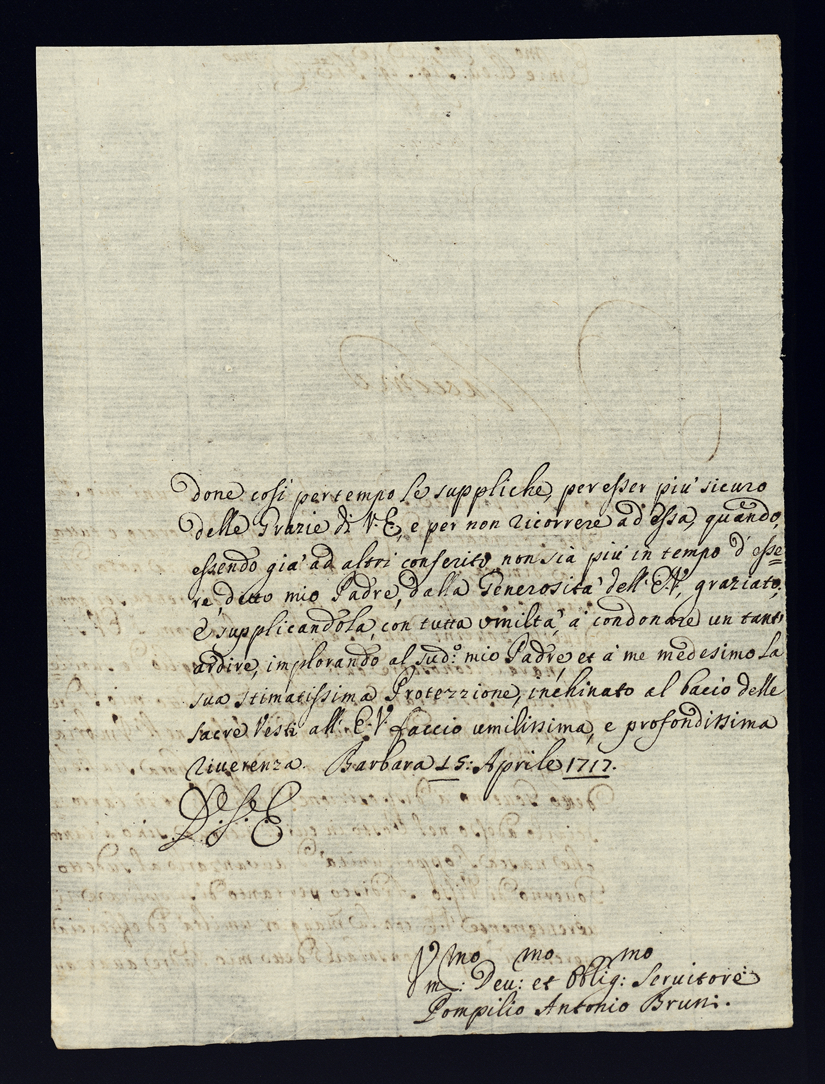 done così pertempo le suppliche, per esser più sicuro
delle Grazie di V. E, e per non ricorrere ad essa, quando,
essendo già ad altri conferito, non sia più in tempo d'esse=
re, detto mio Padre, dalla Generosità dell' E. V, graziato,
E supplicandola, con tutta umiltà, à condonare un tant'
ardire, implorando al sud:o mio Padre, et à me medesimo la
sua stimatissima Protezzione, inchinato al bacio delle
sacre Vesti all' E. V. faccio umilissima, e profondissima
riverenza. Barbara 15: Aprile 1717.
D. V. E.
Vmo mo mo
m: Deu: et Oblig: Servitore
Pompilio Antonio Bruni.